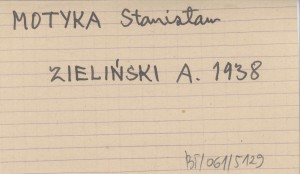 MOTYKA Stanisław
ZIELIŃSKI A. 1938
BT/061/5129